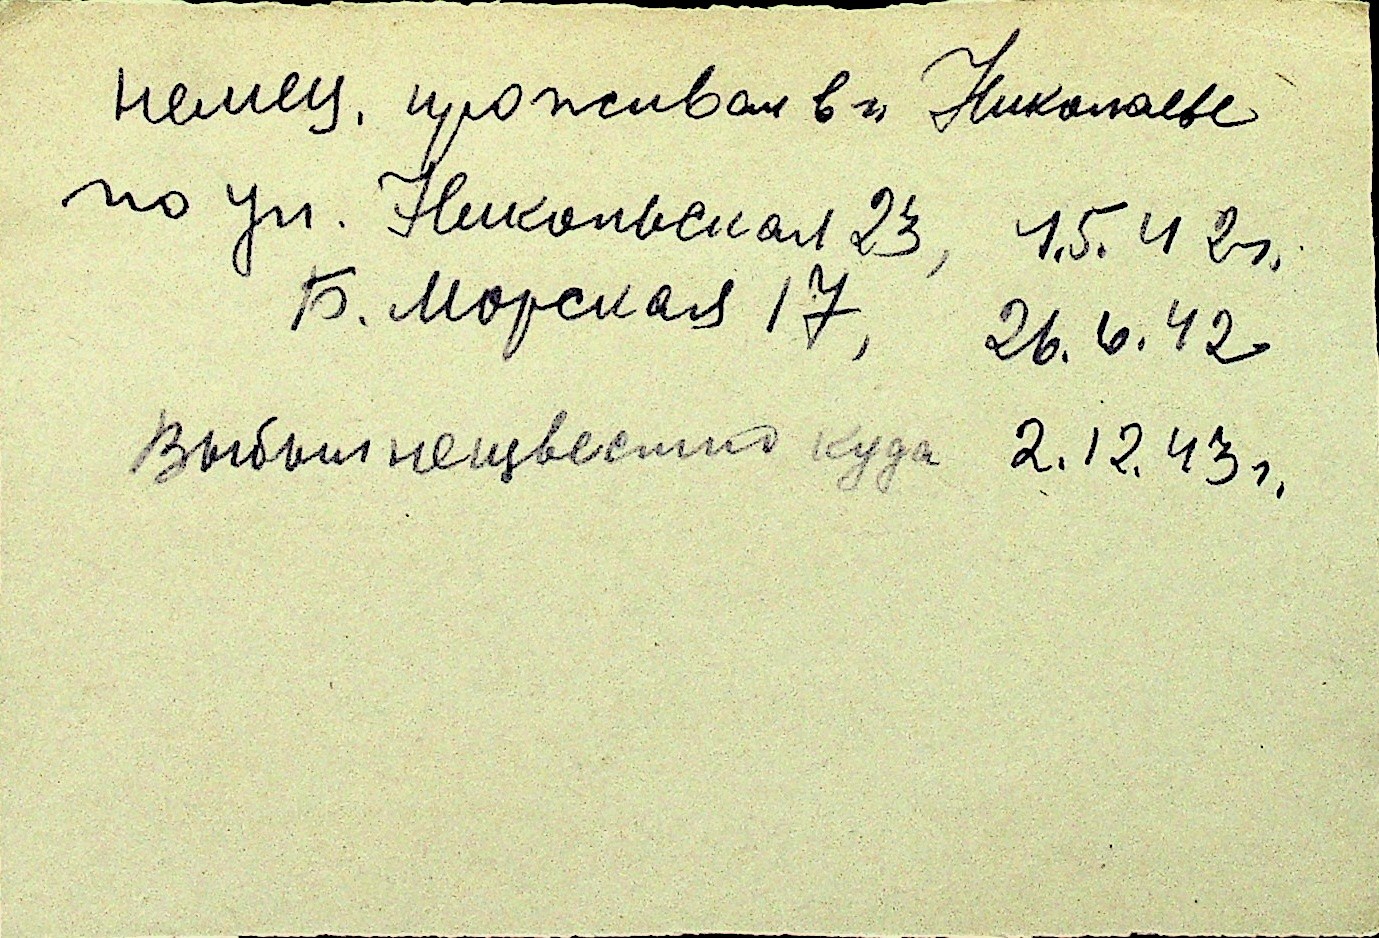 немец, проживал в г. Николаеве
по ул. Никольская 23, 1.5.42 г.
Б. Морская 17, 26.6.42
Выбыл неизвестно куда 2.12.43 г.